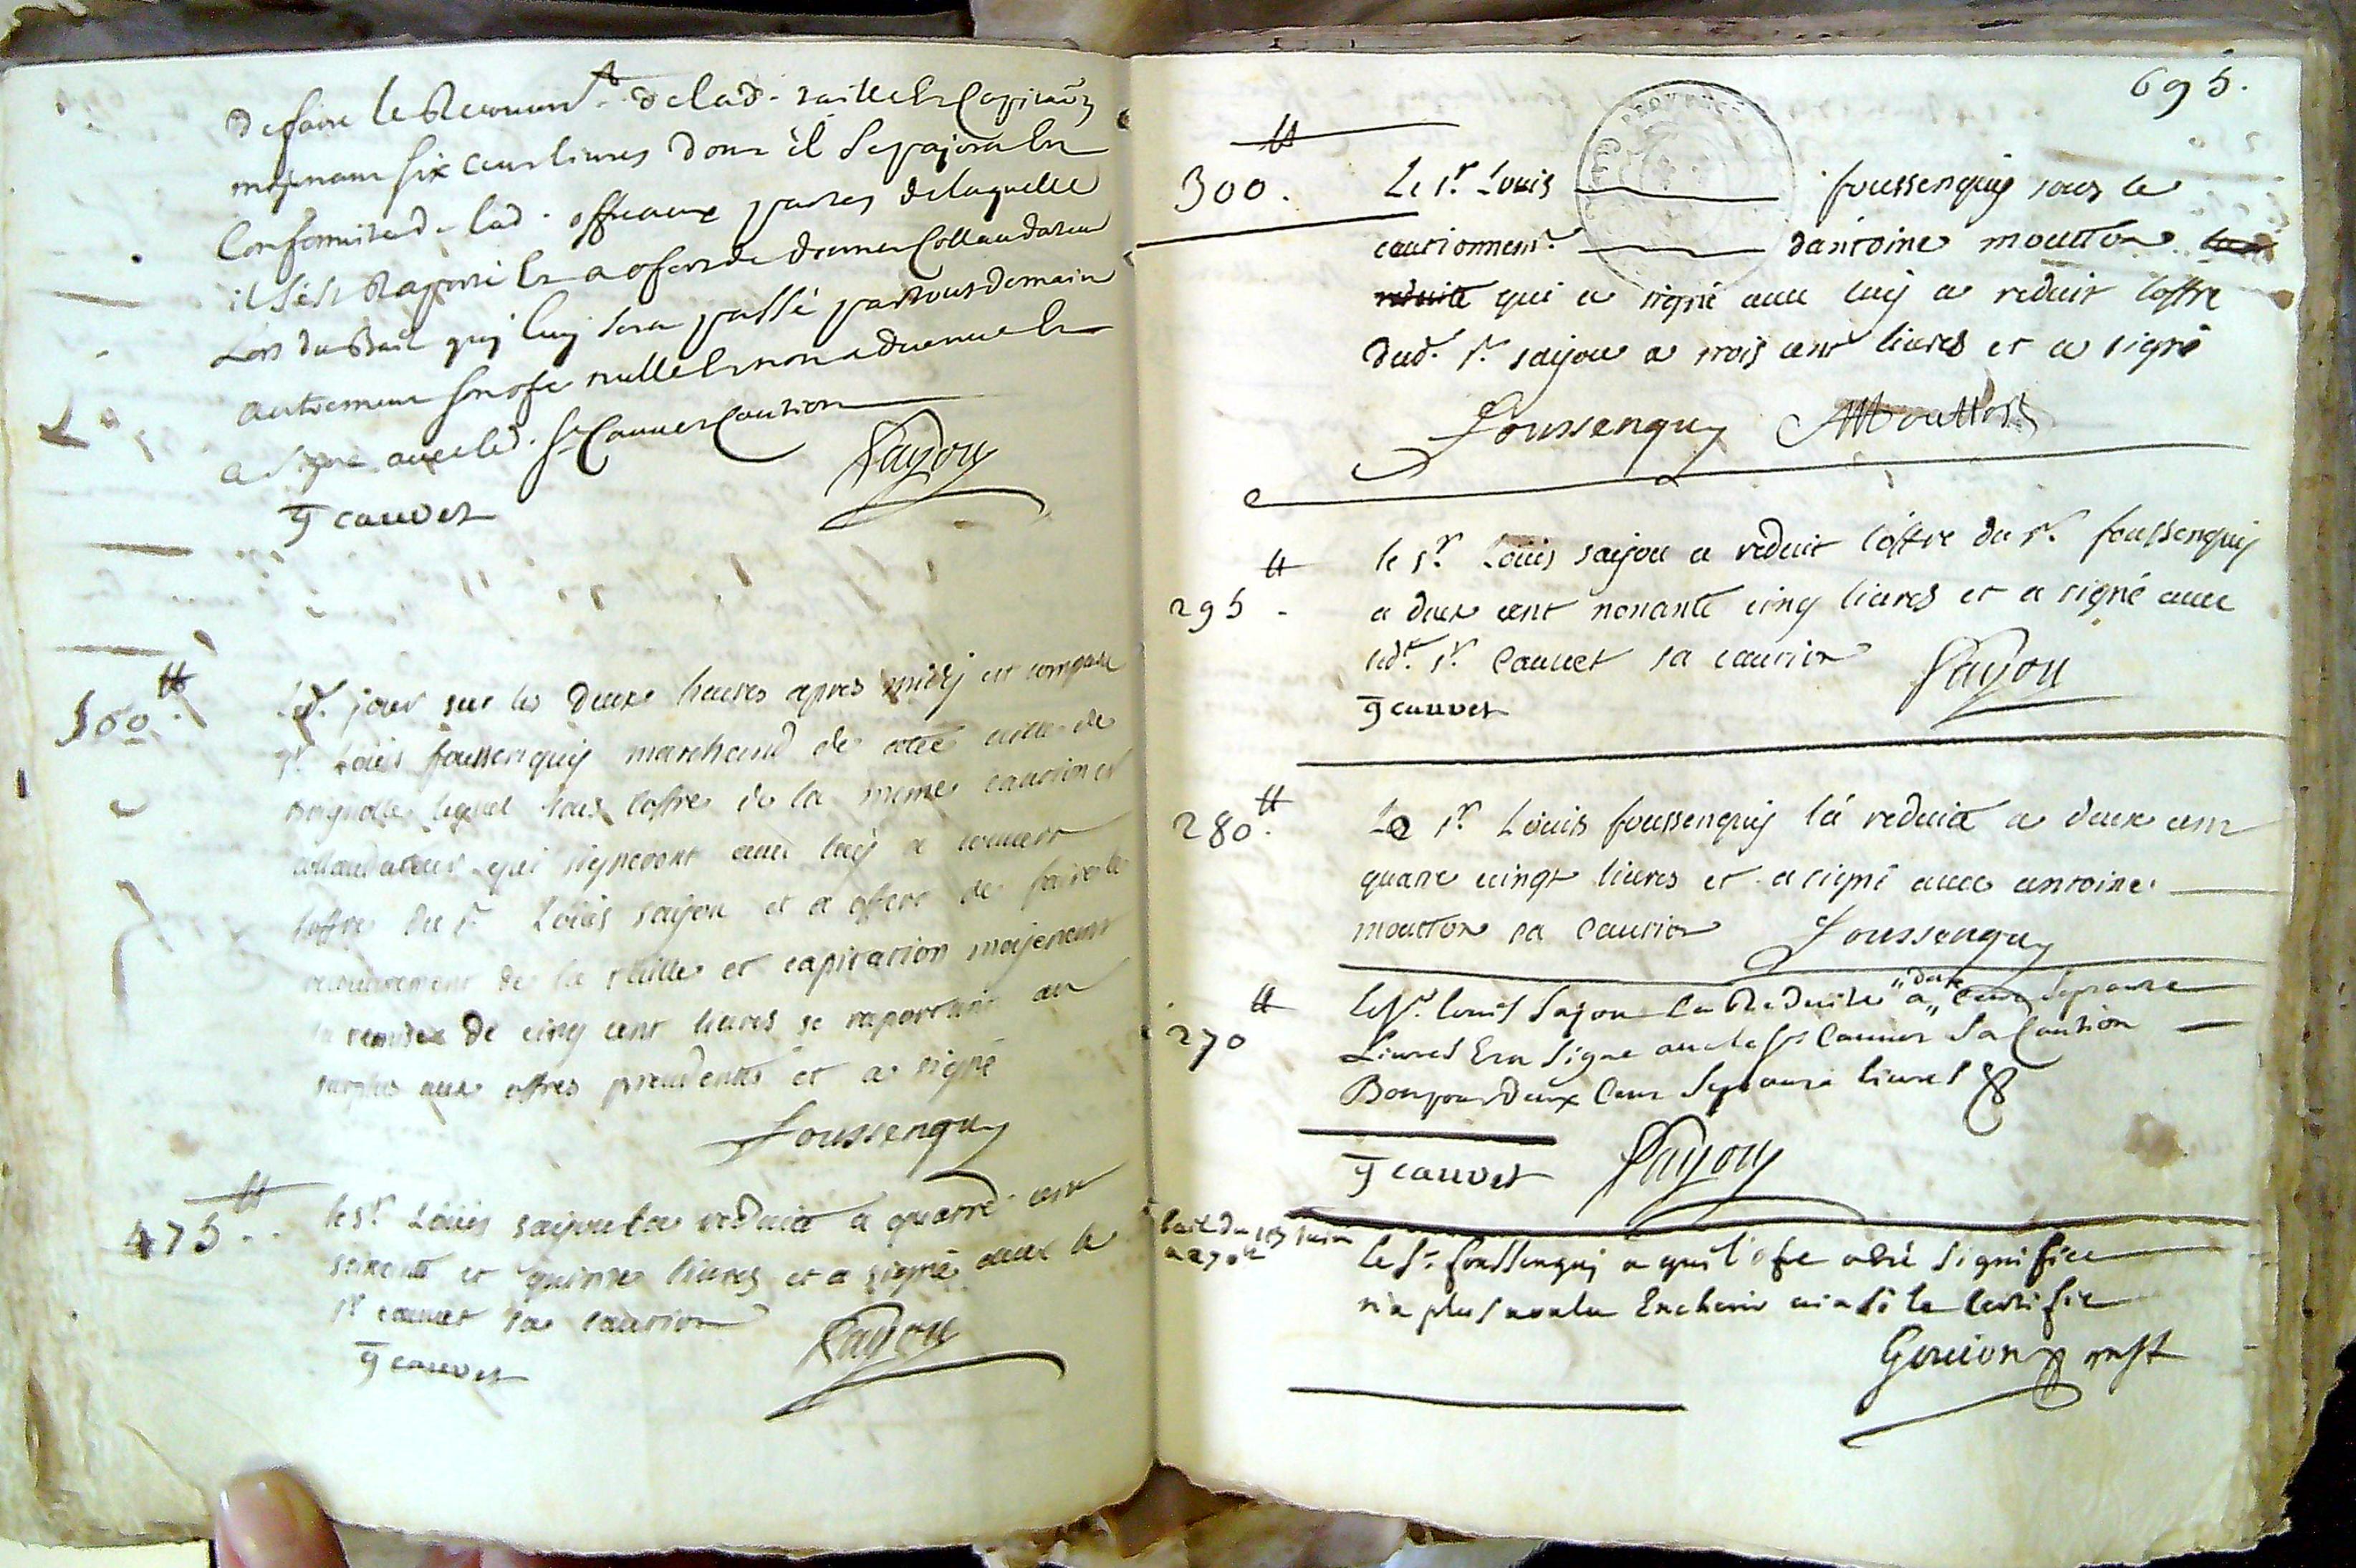 de faire le Recouvrem.t de lad. taille et Capitaon
mojenant six cens livres dont il se payera en
Conformité d lad. offre aux pactes de laquelle
il s'est Raporté et a ofert de donner Collaudateur
Lors du Bail quj luy sera passé par tout Demain
autrement son ofre nulle et non advenue et
a signé avec led. Sr Cauvet Caution
Sayou
g cauvet
500.tt
Led. jour sur les deux heures apres midÿ est comparu
Sr. Louis foussenquÿ marchand de cette ville de
Brignolle lequel sous l'offre de la meme caution et
collaudateur qui signeront avec luÿ a couvert
l'offre du Sr. Louis saÿou et a offert de faire le
recouvrement de la taille et capitation mojenant
la remise de cinq cent livres se raportant au
surplus aux offres precedentes et a signé
Foussenquy
475 tt
le Sr. Louis saÿou l'a reduite a quatre cent
seixante et quinze livres et a signé avec le
Sr cauvet sa caution
Sayou
g cauvet
695.
300.tt
Le Sr. Louis foussenquÿ sous le
cautionnem.t d'antoine moutton
reduite qui a signé avec luÿ a reduit l'offre
dud. Sr. saÿou a trois cent livres et a signé
Foussenquy AMoutton
295 tt
le Sr. Louis saÿou a reduit l'offre du Sr. foussenquÿ
a deux cent nonante cinq livres et a signé avec
led.t Sr. Cauvet sa caution
Sayou
g cauvet
280.tt
Le Sr. Louis foussenquÿ l'a reduite a deux cent
quatre vingt livres et a signé avec antoine
moutton sa Caution Foussenquy
270 tt
Le Sr. Louis Sajou la Reduite a deux Cent Septante
Livres Et a signe avec le Sr Cauvet Sa Caution
Bon pour deux Cent Septante livres
g cauvet Sayou
bail du 15 juin
a 270 tt
Le Sr. foussenquj a qui l'ofre a été signifiée
n'a plus voulu Encherir ainsi le Certifie